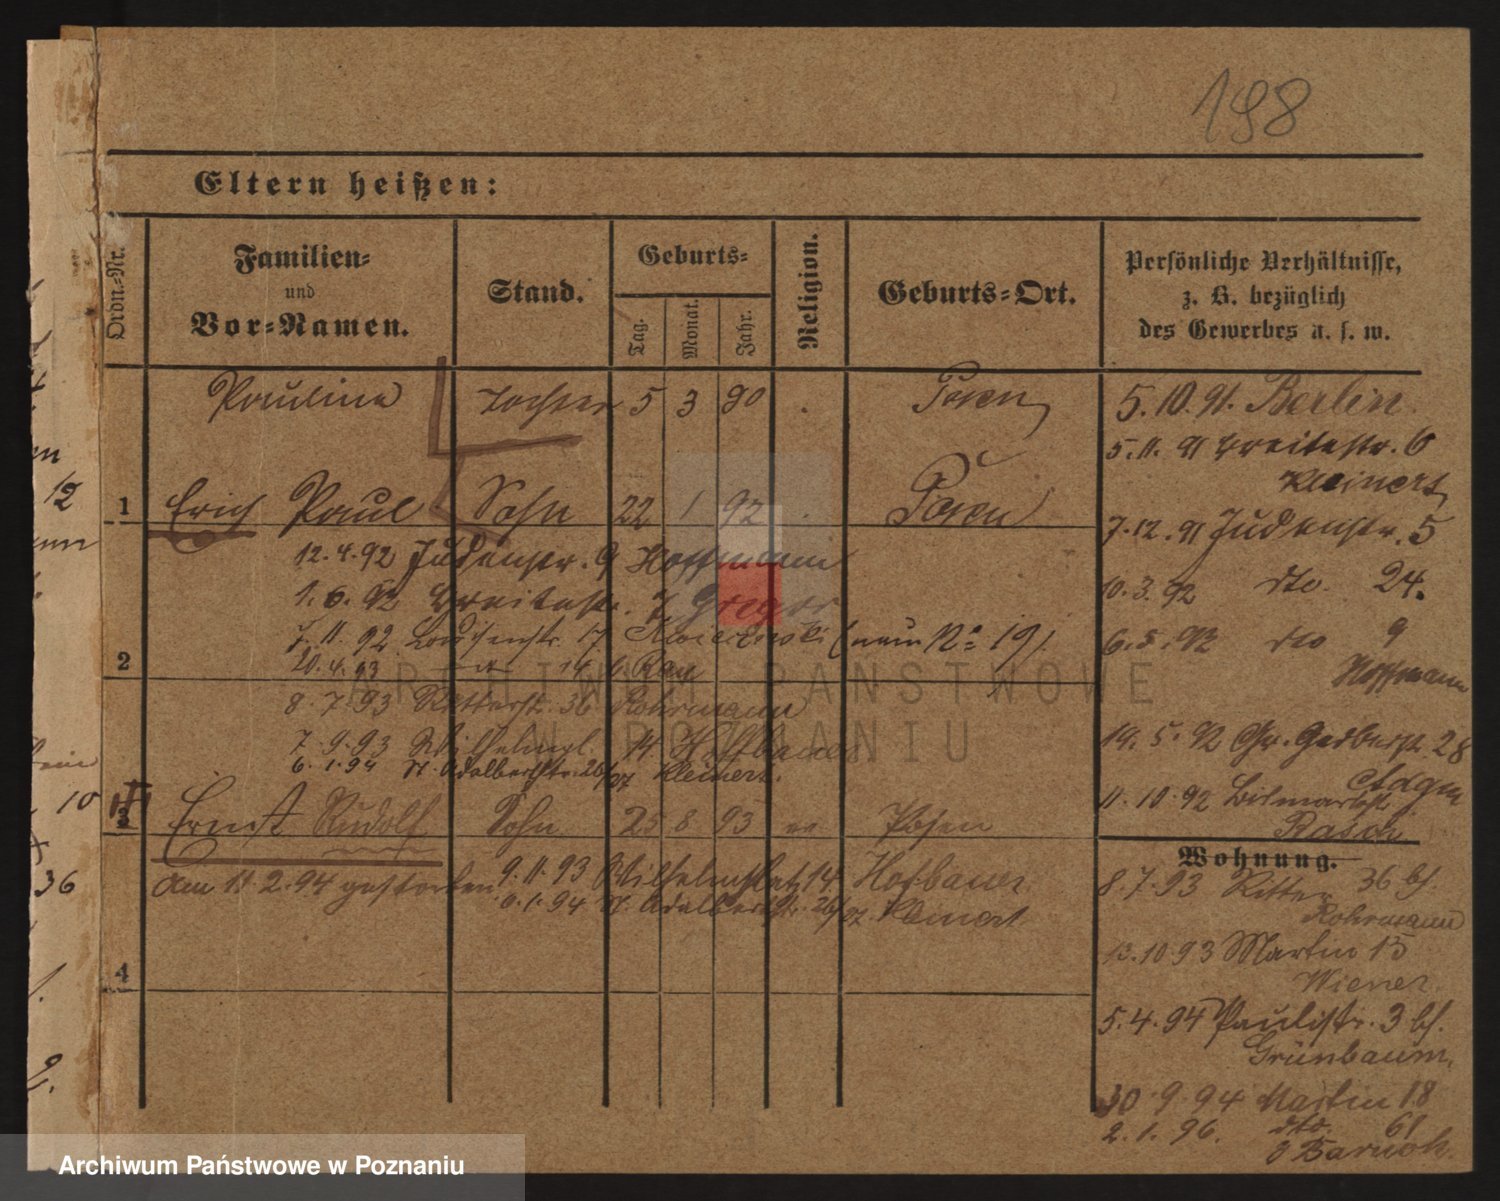 198
Eltern heißen:
Ordn.-Nr.
Familien-
und
Vor-Namen.
Stand.
Geburts-
Tag.
Monat.
Jahr.
Religion.
Geburts-Ort.
Persönliche Verhältnisse,
z. B. bezüglich
des Gewerbes u. s. w.
Pauline Tochter 5 3 90 . Posen
5.10.91. Berlin.
5.11.91 Breitestr. 6
Kleinert
1 Erich Paul Sohn 22 1 92 . Posen
7.12.91 Judenstr. 5
12.4.92 Judenstr. 9 Hoffmann
10.3.92 dto. 24.
1.6.92 Breitestr. 7 Gregor
7.11.92 Louisenstr. 17 (neu No 19).
6.5.92 dto 9
Hoffmann
2
20.4.93 14 b Rau
8.7.93 Ritterstr. 36 Rohrmann
19.5.92 Gr. Gerberstr. 28
7.9.93 Wilhelmpl. 14 Hofbauer
6.1.94 St. Adalbertstr. 26/27 Kleinert.
11.10.92 Bismarckstr
3 Ernst Rudolf Sohn 25 8 93 Posen
Wohnung.
am 11.2.94 gestorben
9.11.93 Wilhelmsplatz 14 Hofbauer
6.1.94 St. Adalbertstr. 26/27 Kleinert
8.7.93 Ritter 36 bf.
Rohrmann
13.10.93 Martin 13
Wiener
4
5.4.94 Paulistr. 3 bf.
Grünbaum,
30.9.94 Martin 18
2.1.96. dto. 61
Baruch
12
10
36
ARCHIWUM PAŃSTWOWE
W POZNANIU
Archiwum Państwowe w Poznaniu